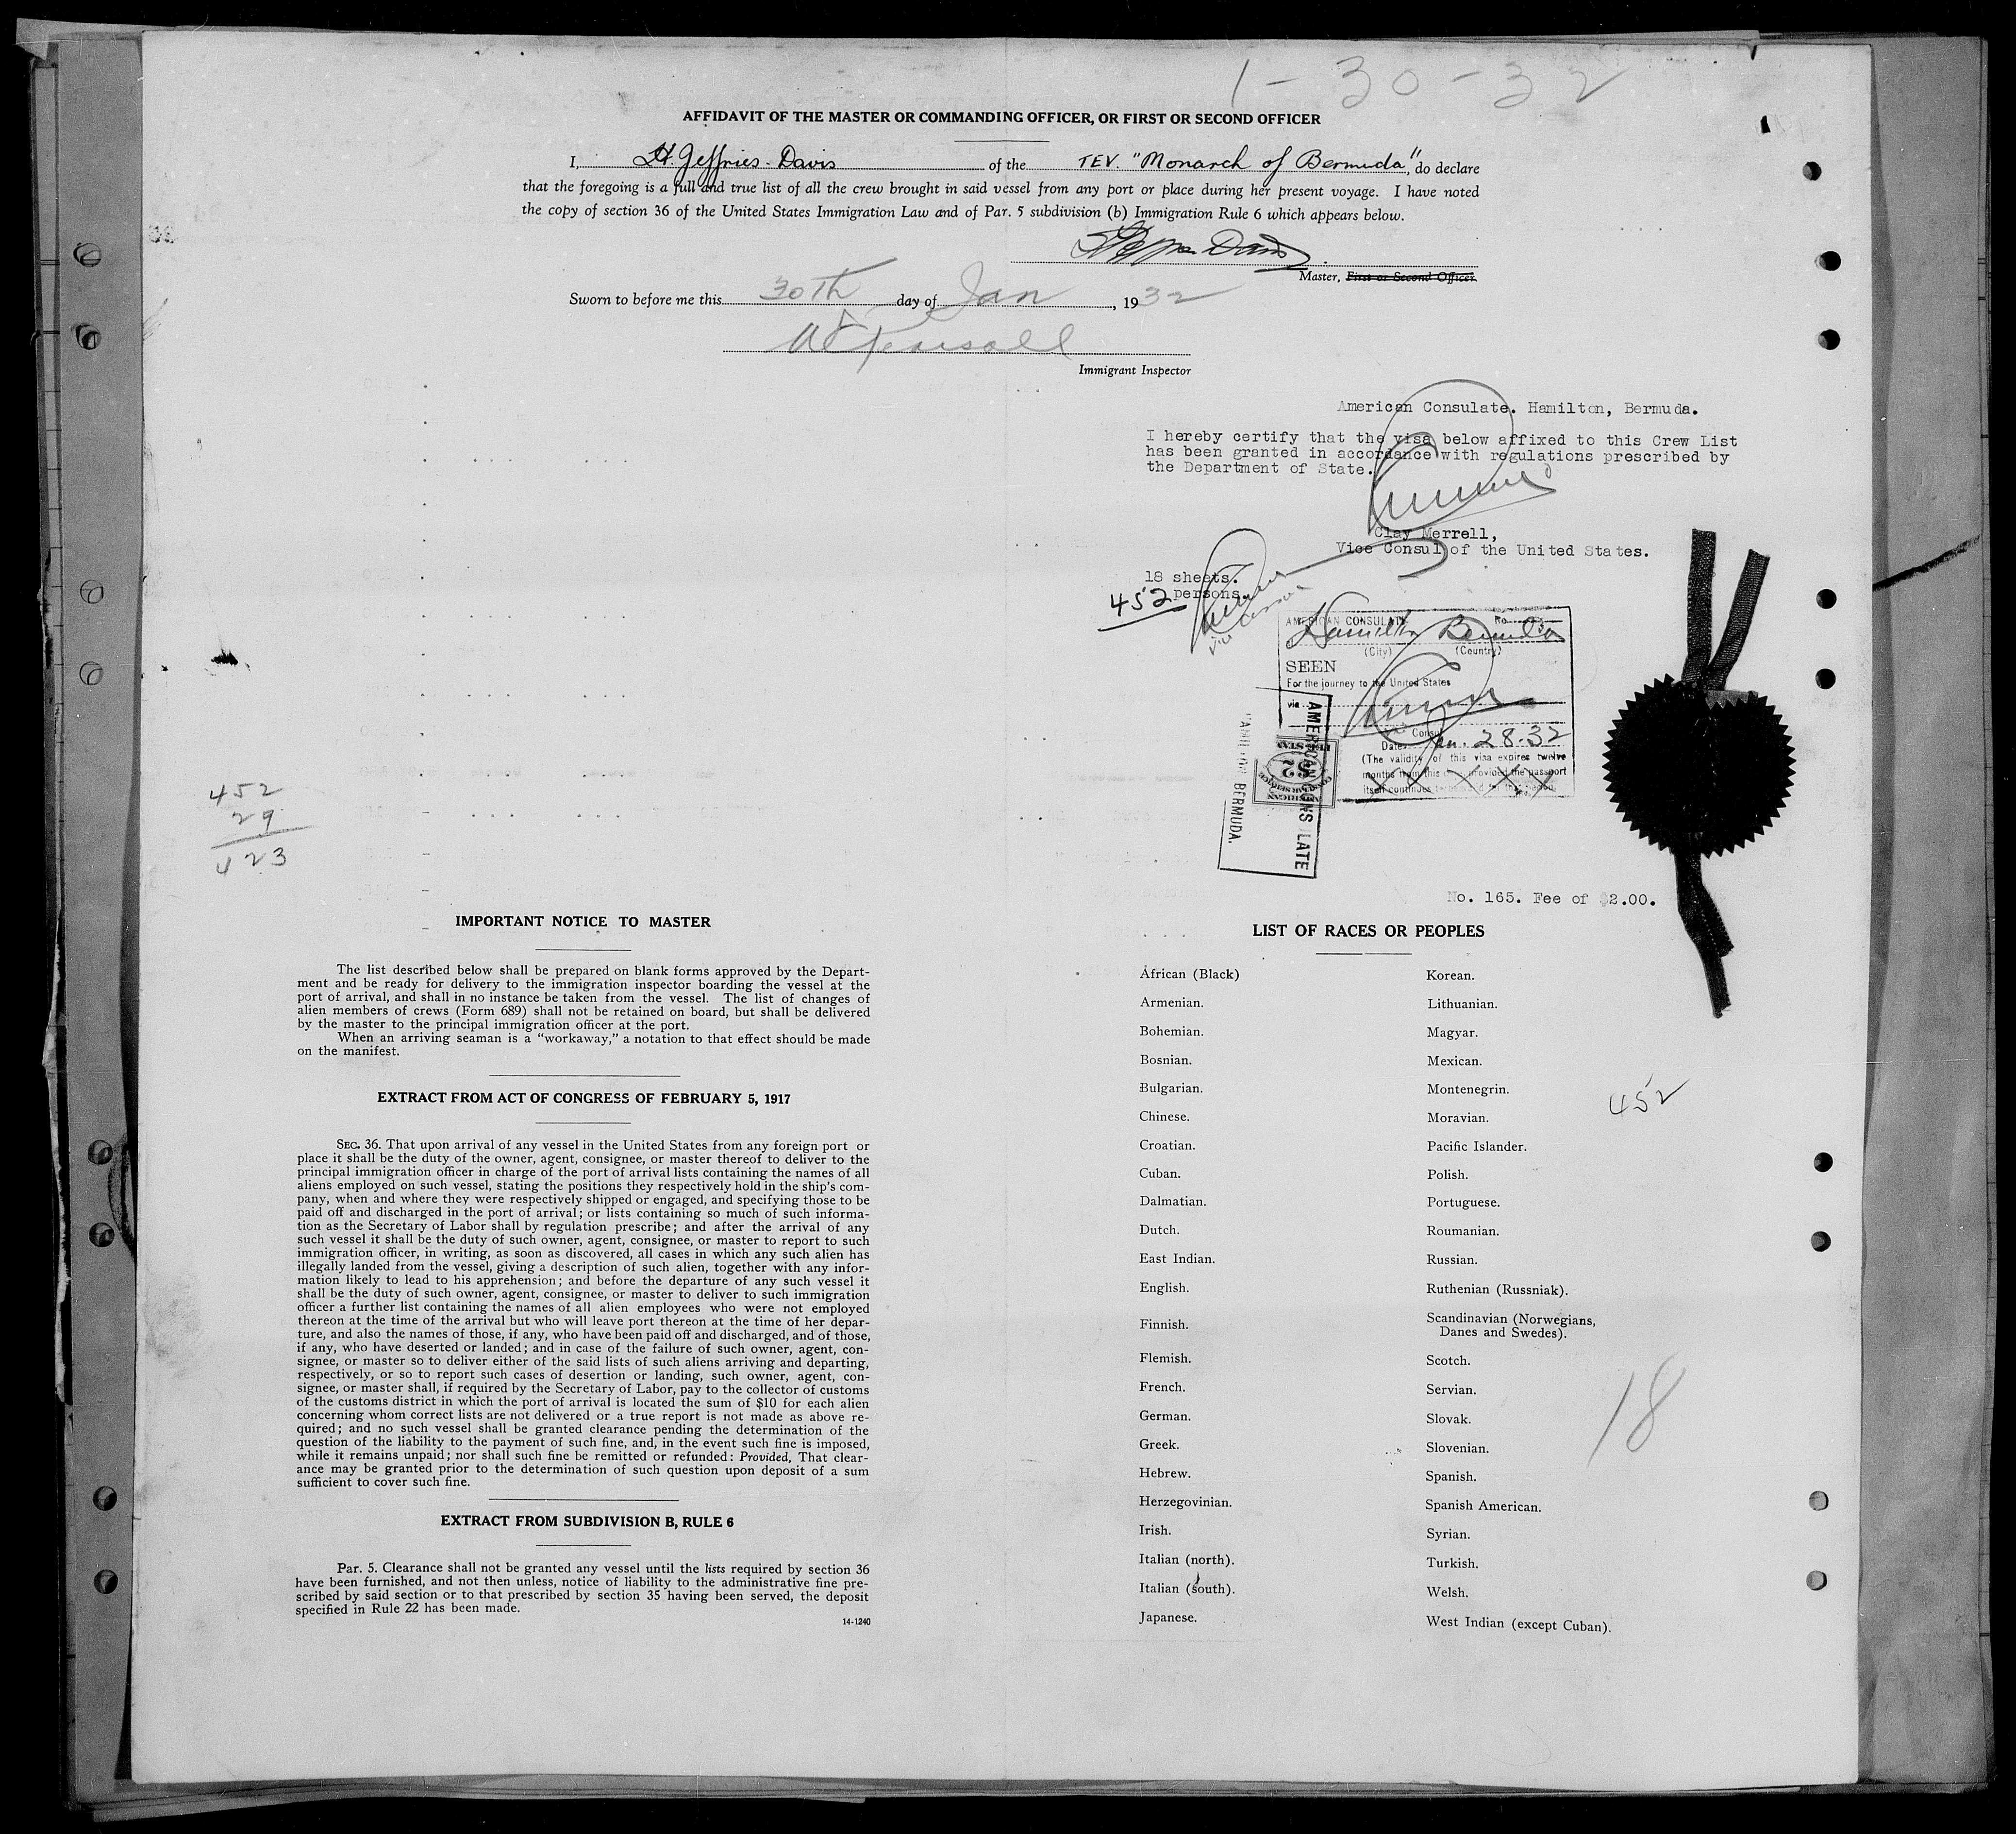 1-30-32
AFFIDAVIT OF THE MASTER OR COMMANDING OFFICER, OR FIRST OR SECOND OFFICER
I, H. Jeffries-Davis of the TEV. "Monarch of Bermuda", do declare
that the foregoing is a full and true list of all the crew brought in said vessel from any port or place during her present voyage. I have noted
the copy of section 36 of the United States Immigration Law and of Par. 5 subdivision (b) Immigration Rule 6 which appears below.
Master, First or Second Officer.
Sworn to before me this 30th day of Jan, 1932
Immigrant Inspector
American Consulate. Hamilton, Bermuda.
I hereby certify that the visa below affixed to this Crew List
has been granted in accordance with regulations prescribed by
the Department of State.
Clay Merrell,
Vice Consul of the United States.
18 sheets.
452 persons.
AMERICAN CONSULATE No.
Hamilton Bermuda
(City) (Country)
SEEN
For the journey to the United States
via
Consul
Date Jan. 28.32
(The validity of this visa expires twelve
months from this provided the passport
itself continues
AMERICAN CONSULATE
BERMUDA.
$2
452
29
423
No. 165. Fee of $2.00.
IMPORTANT NOTICE TO MASTER
The list described below shall be prepared on blank forms approved by the Depart-
ment and be ready for delivery to the immigration inspector boarding the vessel at the
port of arrival, and shall in no instance be taken from the vessel. The list of changes of
alien members of crews (Form 689) shall not be retained on board, but shall be delivered
by the master to the principal immigration officer at the port.
When an arriving seaman is a "workaway," a notation to that effect should be made
on the manifest.
EXTRACT FROM ACT OF CONGRESS OF FEBRUARY 5, 1917
SEC. 36. That upon arrival of any vessel in the United States from any foreign port or
place it shall be the duty of the owner, agent, consignee, or master thereof to deliver to the
principal immigration officer in charge of the port of arrival lists containing the names of all
aliens employed on such vessel, stating the positions they respectively hold in the ship's com-
pany, when and where they were respectively shipped or engaged, and specifying those to be
paid off and discharged in the port of arrival; or lists containing so much of such informa-
tion as the Secretary of Labor shall by regulation prescribe; and after the arrival of any
such vessel it shall be the duty of such owner, agent, consignee, or master to report to such
immigration officer, in writing, as soon as discovered, all cases in which any such alien has
illegally landed from the vessel, giving a description of such alien, together with any infor-
mation likely to lead to his apprehension; and before the departure of any such vessel it
shall be the duty of such owner, agent, consignee, or master to deliver to such immigration
officer a further list containing the names of all alien employees who were not employed
thereon at the time of the arrival but who will leave port thereon at the time of her depar-
ture, and also the names of those, if any, who have been paid off and discharged, and of those,
if any, who have deserted or landed; and in case of the failure of such owner, agent, con-
signee, or master so to deliver either of the said lists of such aliens arriving and departing,
respectively, or so to report such cases of desertion or landing, such owner, agent, con-
signee, or master shall, if required by the Secretary of Labor, pay to the collector of customs
of the customs district in which the port of arrival is located the sum of $10 for each alien
concerning whom correct lists are not delivered or a true report is not made as above re-
quired; and no such vessel shall be granted clearance pending the determination of the
question of the liability to the payment of such fine, and, in the event such fine is imposed,
while it remains unpaid; nor shall such fine be remitted or refunded: Provided, That clear-
ance may be granted prior to the determination of such question upon deposit of a sum
sufficient to cover such fine.
EXTRACT FROM SUBDIVISION B, RULE 6
Par. 5. Clearance shall not be granted any vessel until the lists required by section 36
have been furnished, and not then unless, notice of liability to the administrative fine pre-
scribed by said section or to that prescribed by section 35 having been served, the deposit
specified in Rule 22 has been made.
14-1240
LIST OF RACES OR PEOPLES
African (Black)
Armenian.
Bohemian.
Bosnian.
Bulgarian.
Chinese.
Croatian.
Cuban.
Dalmatian.
Dutch.
East Indian.
English.
Finnish.
Flemish.
French.
German.
Greek.
Hebrew.
Herzegovinian.
Irish.
Italian (north).
Italian (south).
Japanese.
Korean.
Lithuanian.
Magyar.
Mexican.
Montenegrin.
Moravian.
Pacific Islander.
Polish.
Portuguese.
Roumanian.
Russian.
Ruthenian (Russniak).
Scandinavian (Norwegians,
Danes and Swedes).
Scotch.
Servian.
Slovak.
Slovenian.
Spanish.
Spanish American.
Syrian.
Turkish.
Welsh.
West Indian (except Cuban).
452
18